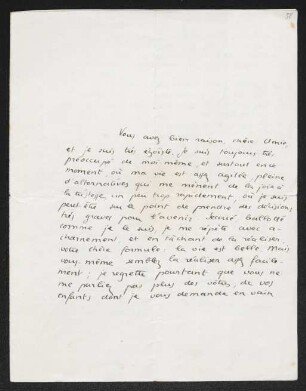 Vous avez bien raison, chère Amie,
et je suis très égoïste, je suis toujours très
préoccupé de moi même, et surtout en ce
moment où ma vie est assez agitée pleine
d'alternatives qui me mènent de la joie à
la tristesse, un peu trop rapidement, où je suis
peut être sur le point de prendre des décisions
très graves pour l'avenir. Secoué ballotté
comme je le suis, je me répète avec a-
charnement et en tâchant de la réaliser
votre chère formule: la vie est belle. Mais
vous-même semblez la réaliser assez facile-
ment; je regrette pourtant que vous ne
me parliez pas plus des vôtres, de vos
enfants dont je vous demande en vain